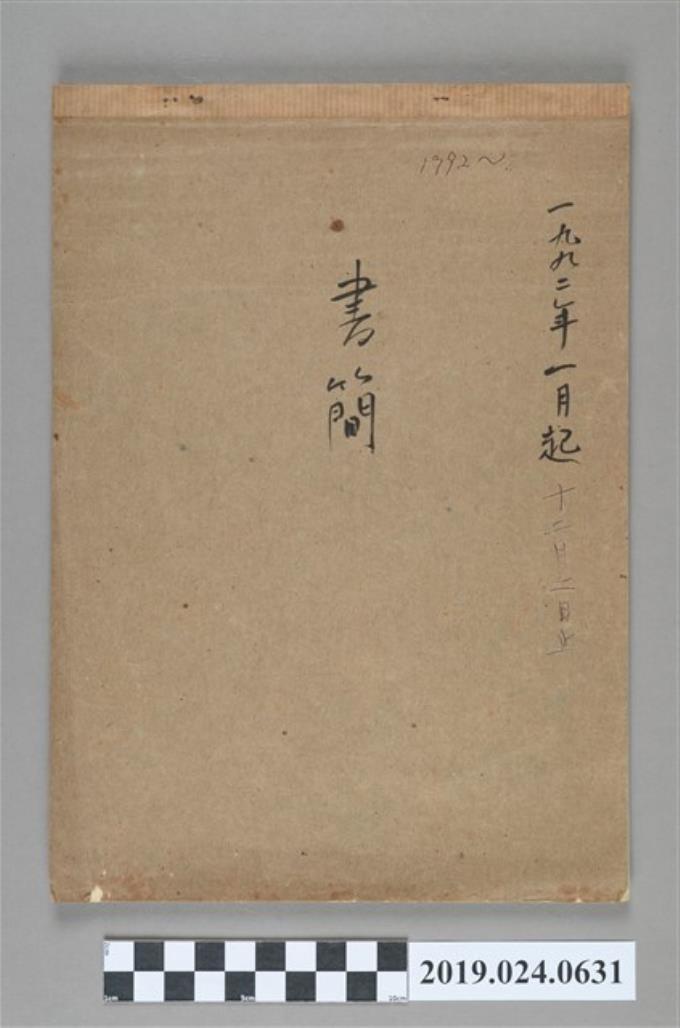 1992~
一九九二年一月起 十二月二日止
書簡
2019.024.0631
0
1cm
5cm
10cm